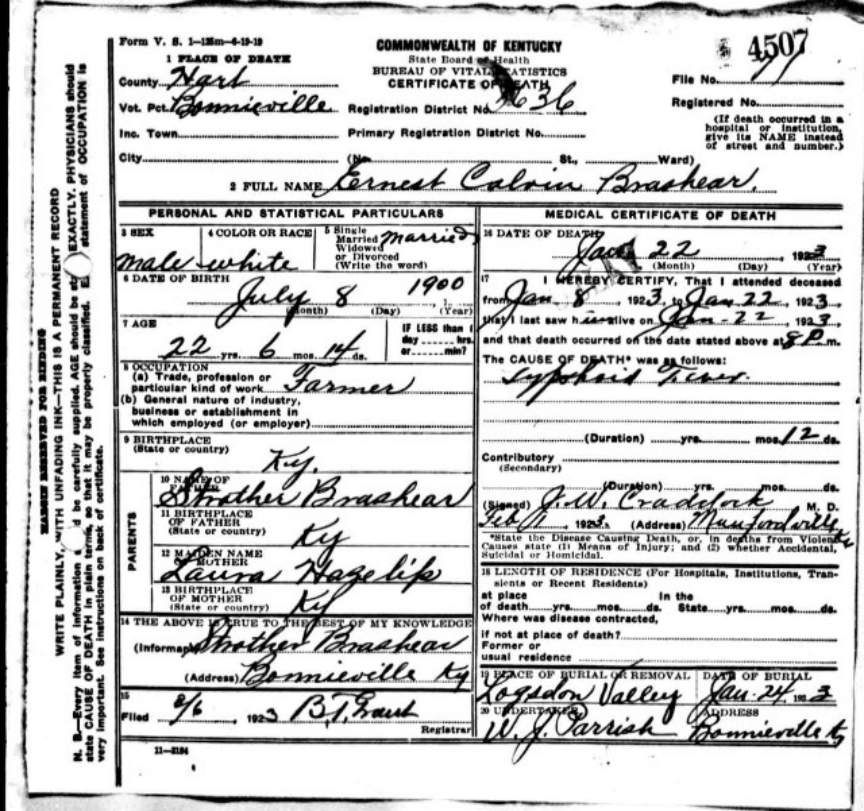 Form V. S. 1—125m—6-19-19
COMMONWEALTH OF KENTUCKY
State Board of Health
BUREAU OF VITAL STATISTICS
CERTIFICATE OF DEATH
4507
File No.
Registered No.
(If death occurred in a
hospital or institution,
give its NAME instead
of street and number.)
1 PLACE OF DEATH
County Hart
Vot. Pct. Bonnieville
Registration District No. 3636
Inc. Town
Primary Registration District No.
City
(No. St., Ward)
2 FULL NAME Ernest Calvin Brashear.
PERSONAL AND STATISTICAL PARTICULARS
3 SEX
male
4 COLOR OR RACE
white
5 Single
Married
Widowed
or Divorced
(Write the word)
Married
6 DATE OF BIRTH
July 8 1900
(Month) (Day) (Year)
7 AGE
22 yrs. 6 mos. 14 ds.
IF LESS than 1
day hrs.
or min?
8 OCCUPATION
(a) Trade, profession or
particular kind of work Farmer
(b) General nature of industry,
business or establishment in
which employed (or employer)
9 BIRTHPLACE
(State or country)
Ky.
PARENTS
10 NAME OF
FATHER
Strother Brashear
11 BIRTHPLACE
OF FATHER
(State or country)
Ky
12 MAIDEN NAME
OF MOTHER
Laura Hazelip
13 BIRTHPLACE
OF MOTHER
(State or country)
Ky
14 THE ABOVE IS TRUE TO THE BEST OF MY KNOWLEDGE
(Informant) Strother Brashear
(Address) Bonnieville Ky
15
Filed 2/6, 1923 B.T. Grant
Registrar
11—2184
MEDICAL CERTIFICATE OF DEATH
16 DATE OF DEATH
Jan 22 1923
(Month) (Day) (Year)
17 I HEREBY CERTIFY, That I attended deceased
from Jan 8, 1923, to Jan 22, 1923,
that I last saw him alive on Jan-22, 1923,
and that death occurred on the date stated above at 8 P. m.
The CAUSE OF DEATH* was as follows:
Typhoid Fever.
(Duration) yrs. mos. 12 ds.
Contributory
(Secondary)
(Duration) yrs. mos. ds.
(Signed) J. W. Craddock M. D.
Feb 1923. (Address) Munfordville Ky
*State the Disease Causing Death, or, in deaths from Violent
Causes state (1) Means of Injury; and (2) whether Accidental,
Suicidal or Homicidal.
18 LENGTH OF RESIDENCE (For Hospitals, Institutions, Tran-
sients or Recent Residents)
at place In the
of death yrs. mos. ds. State yrs. mos. ds.
Where was disease contracted,
if not at place of death?
Former or
usual residence
19 PLACE OF BURIAL OR REMOVAL
Logsdon Valley
DATE OF BURIAL
Jan-24, 1923
20 UNDERTAKER
W. J. Parrish
ADDRESS
Bonnieville Ky
MARGIN RESERVED FOR BINDING
WRITE PLAINLY, WITH UNFADING INK—THIS IS A PERMANENT RECORD
N. B.—Every item of information should be carefully supplied. AGE should be stated EXACTLY. PHYSICIANS should
state CAUSE OF DEATH in plain terms, so that it may be properly classified. Exact statement of OCCUPATION is
very important. See instructions on back of certificate.